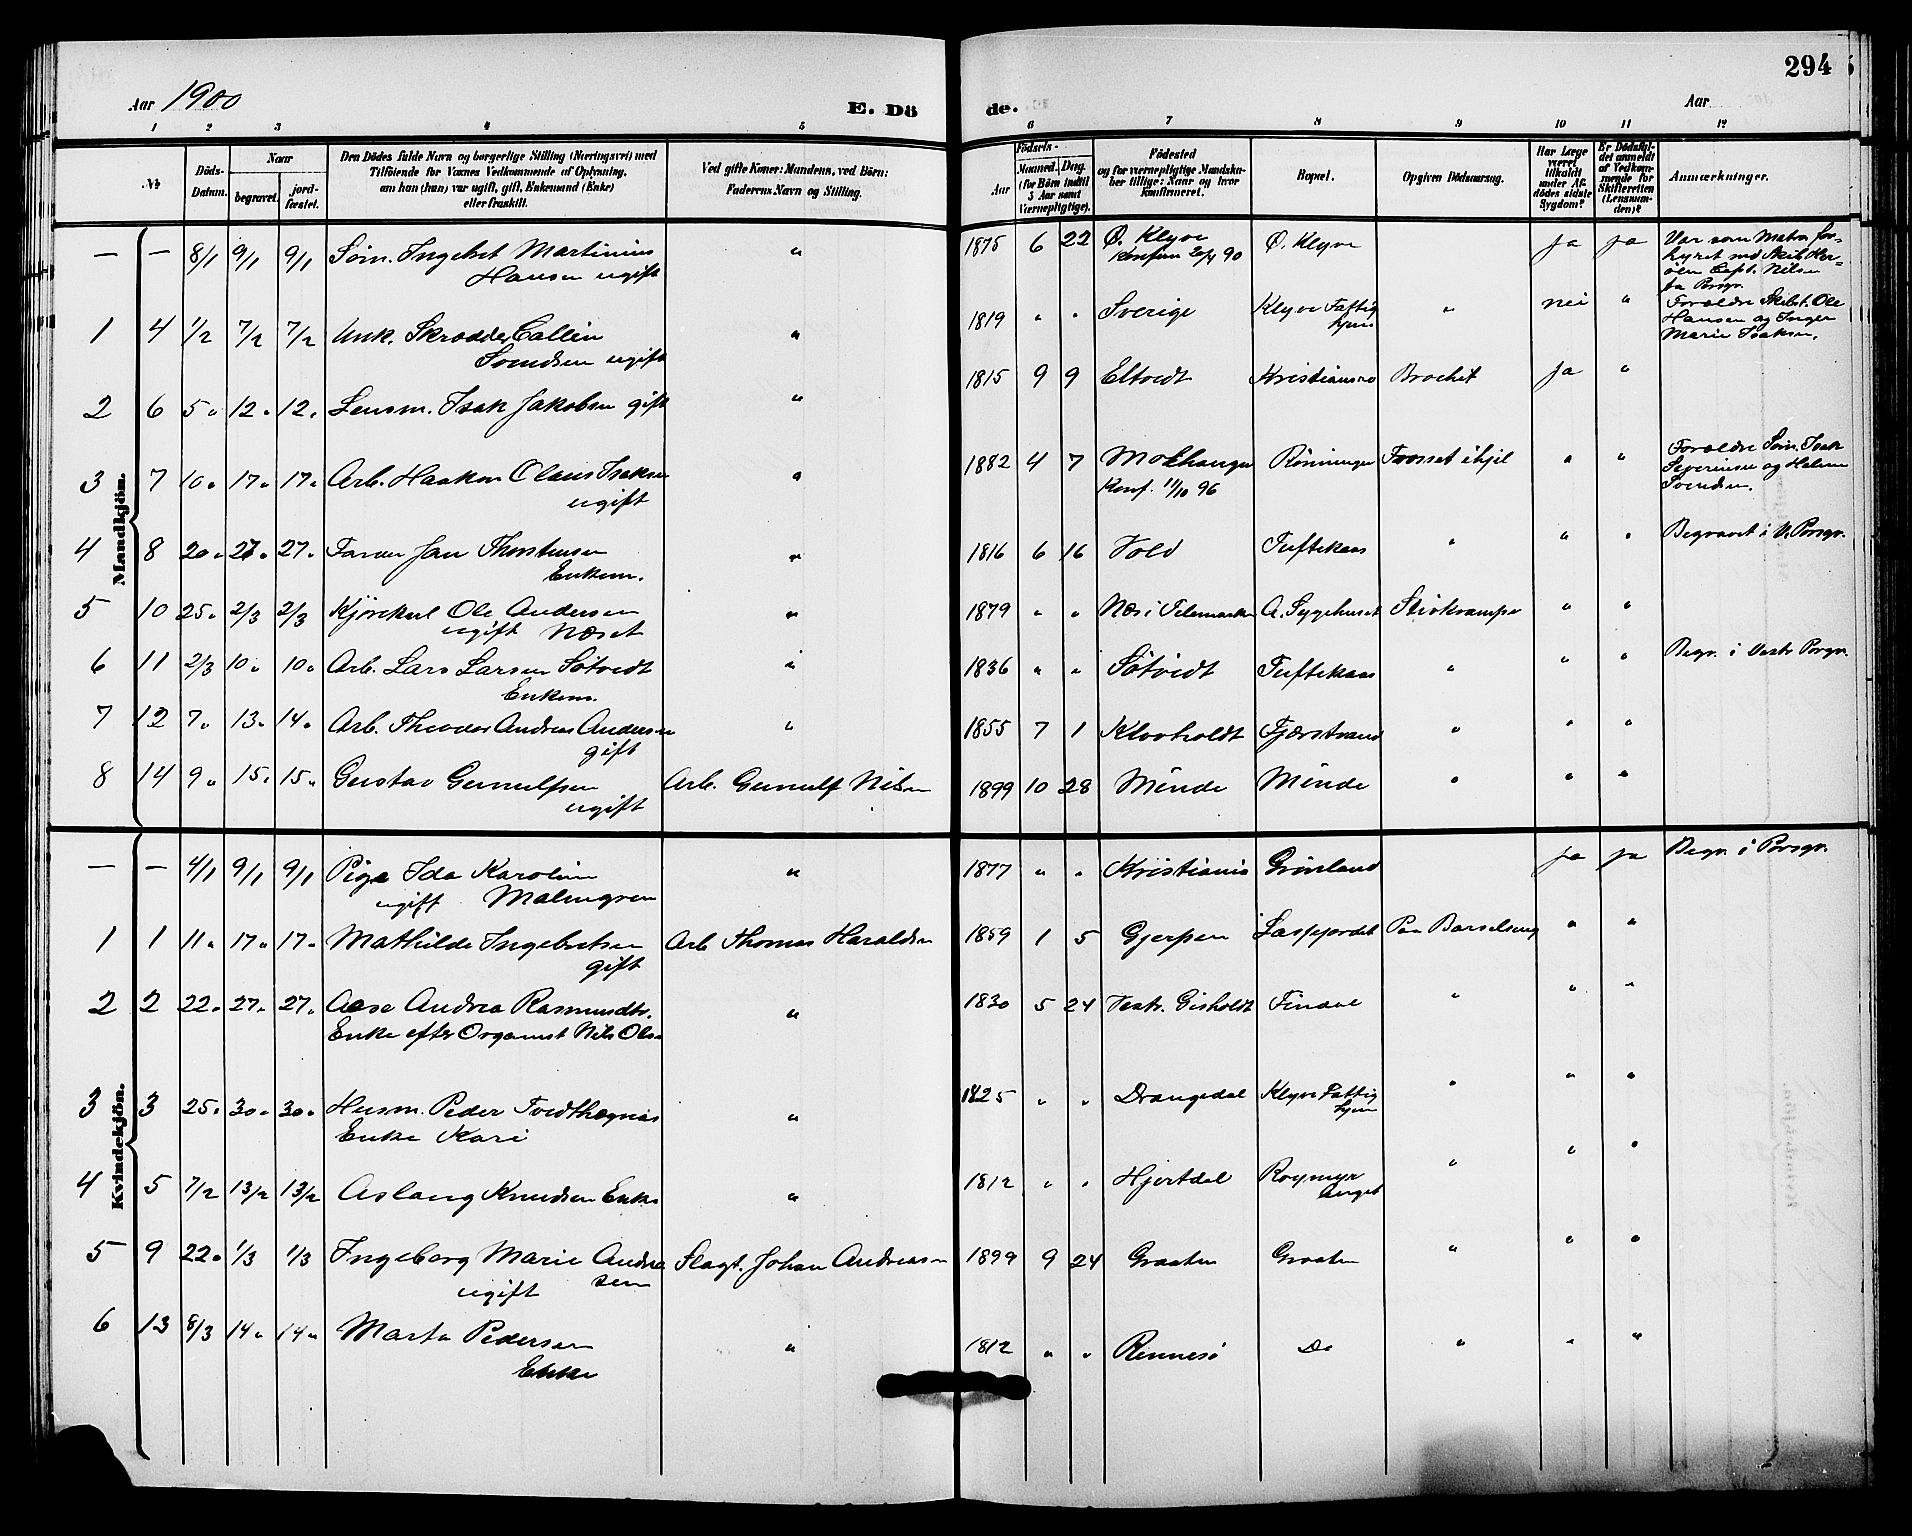 294
Aar 1900
E. Dö
de.
Aar
1 2 3 4 5 6 7 8 9 10 11 12
№
Döds-Datum.
Naar
begravet.
jord-fæstet.
Den Dödes fulde Navn og borgerlige Stilling (Næringsvei) med
Tilföiende for Voxnes Vedkommende af Oplysning,
om han (hun) var ugift, gift, Enkemand (Enke)
eller fraskilt.
Ved gifte Koner: Mandens, ved Börn:
Faderens Navn og Stilling.
Födsels-
Aar
Maaned. Dag.
(for Börn indtil
5 Aar samt
Værnepligtige).
Födested
og for værnepligtige Mandskaber tillige: Naar og hvor
konfirmeret.
Bopæl.
Opgiven Dödsaarsag.
Har Læge
været
tilkaldt
under Afdödes sidste
Sygdom?
Er Dödsfaldet anmeldt
af Vedkommende for
Skifteretten
(Lensmanden)?
Anmærkninger.
Mandkjön.
— — 8/1 9/1 9/1 Söm. Ingebret Martinius " 1875 6 22 Ø. Klyve Ø. Klyve ja ja Var som Matros for-
Hansen ugift Konfirm 20/4 90 hyret med Skib Her-
Capt. Nilsen
fra Porsgr.
1 4 1/2 7/2 7/2 Unk. Skrædder Callin " 1819 " " Sverige Klyve Fattig " nei " Forældre Skibst. Ole
Svendsen ugift hjem Hansen og Inger
Marie Isaksen.
2 6 5" 12" 12" Lensm. Isak Jakobsen gift " 1815 9 9 Eltvedt Kristiansro Brochit ja "
3 7 10" 17" 17" Arb. Haakon Olaus Isaksen " 1882 4 7 Molhaugen Rönningen Frosset ihjel " " Forældre Söm. Isak
ugift Konf. 11/10 96 Severinsen og Helene
Svendsen.
4 8 20" 27" 27" Farver Jan Thorstensen " 1816 6 16 Vold Tuftekaas " " " Begravet i V. Porsgr.
Enkem.
5 10 25" 2/3 2/3 Kjörekarl Ole Andersen " 1879 " " Næs i Telemarken A. Sygehuset Stivkrampe " "
ugift Næset
6 11 2/3 10" 10" Arb. Lars Larsen Sötvedt " 1836 " " Sötvedt Tuftekaas " " " Begr. i Vestr Porsgr.
Enkem.
7 12 7" 13" 14" Arb. Theodor Andreas Andersen " 1855 7 1 Klovholdt Fjærstrand " " "
gift
8 14 9" 15" 15" Gustav Gunnulfsen Arb. Gunnulf Nilsen 1899 10 28 Minde Minde " " "
ugift
Kvindekjön.
— — 4/1 9/1 9/1 Pige Ida Karolin " 1877 " " Kristiania Grönland ja ja Begr. i Porsgr.
ugift Malmgren
1 1 11" 17" 17" Mathilde Ingebretsen Arb Thomas Haraldsen 1859 1 5 Gjerpen Lassejordet Paa Barselseng " "
gift
2 2 22" 27" 27" Aase Andrea Rasmundtr. " 1830 5 24 Vestr. Gisholdt Findal " " "
Enke efter Organist Nils Olsen
3 3 25" 30" 30" Husm. Peder Tvedthægnæs " 1825 " " Drangedal Klyve Fattig " " "
Enke Kari hjem
4 5 7/2 13/2 13/2 Aslaug Knudsen Enke " 1812 " " Hjertdal Roymyr " " "
5 9 22" 1/3 1/3 Ingeborg Marie Andrea Slagt. Johan Andreassen 1899 9 24 Graaten Graaten " " "
sen
ugift
6 13 8/3 14" 14" Marta Pedersen " 1812 " " Rennesö Do " " "
Enke